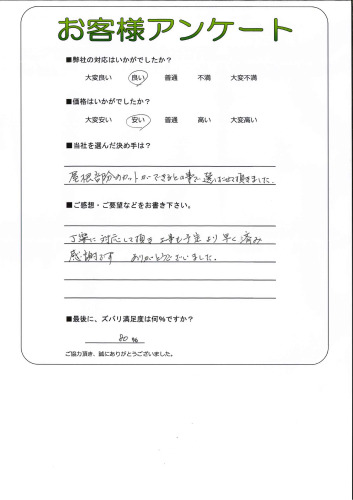 お客様アンケート
■弊社の対応はいかがでしたか？
大変良い 良い 普通 不満 大変不満
■価格はいかがでしたか？
大変安い 安い 普通 高い 大変高い
■当社を選んだ決め手は？
屋根部分のカットができるとの事で選ばせて頂きました。
■ご感想・ご要望などをお書き下さい。
丁寧に対応して頂き 工事も予定より早く済み
感謝です ありがとうございました。
■最後に、ズバリ満足度は何%ですか？
80 %
ご協力頂き、誠にありがとうございました。